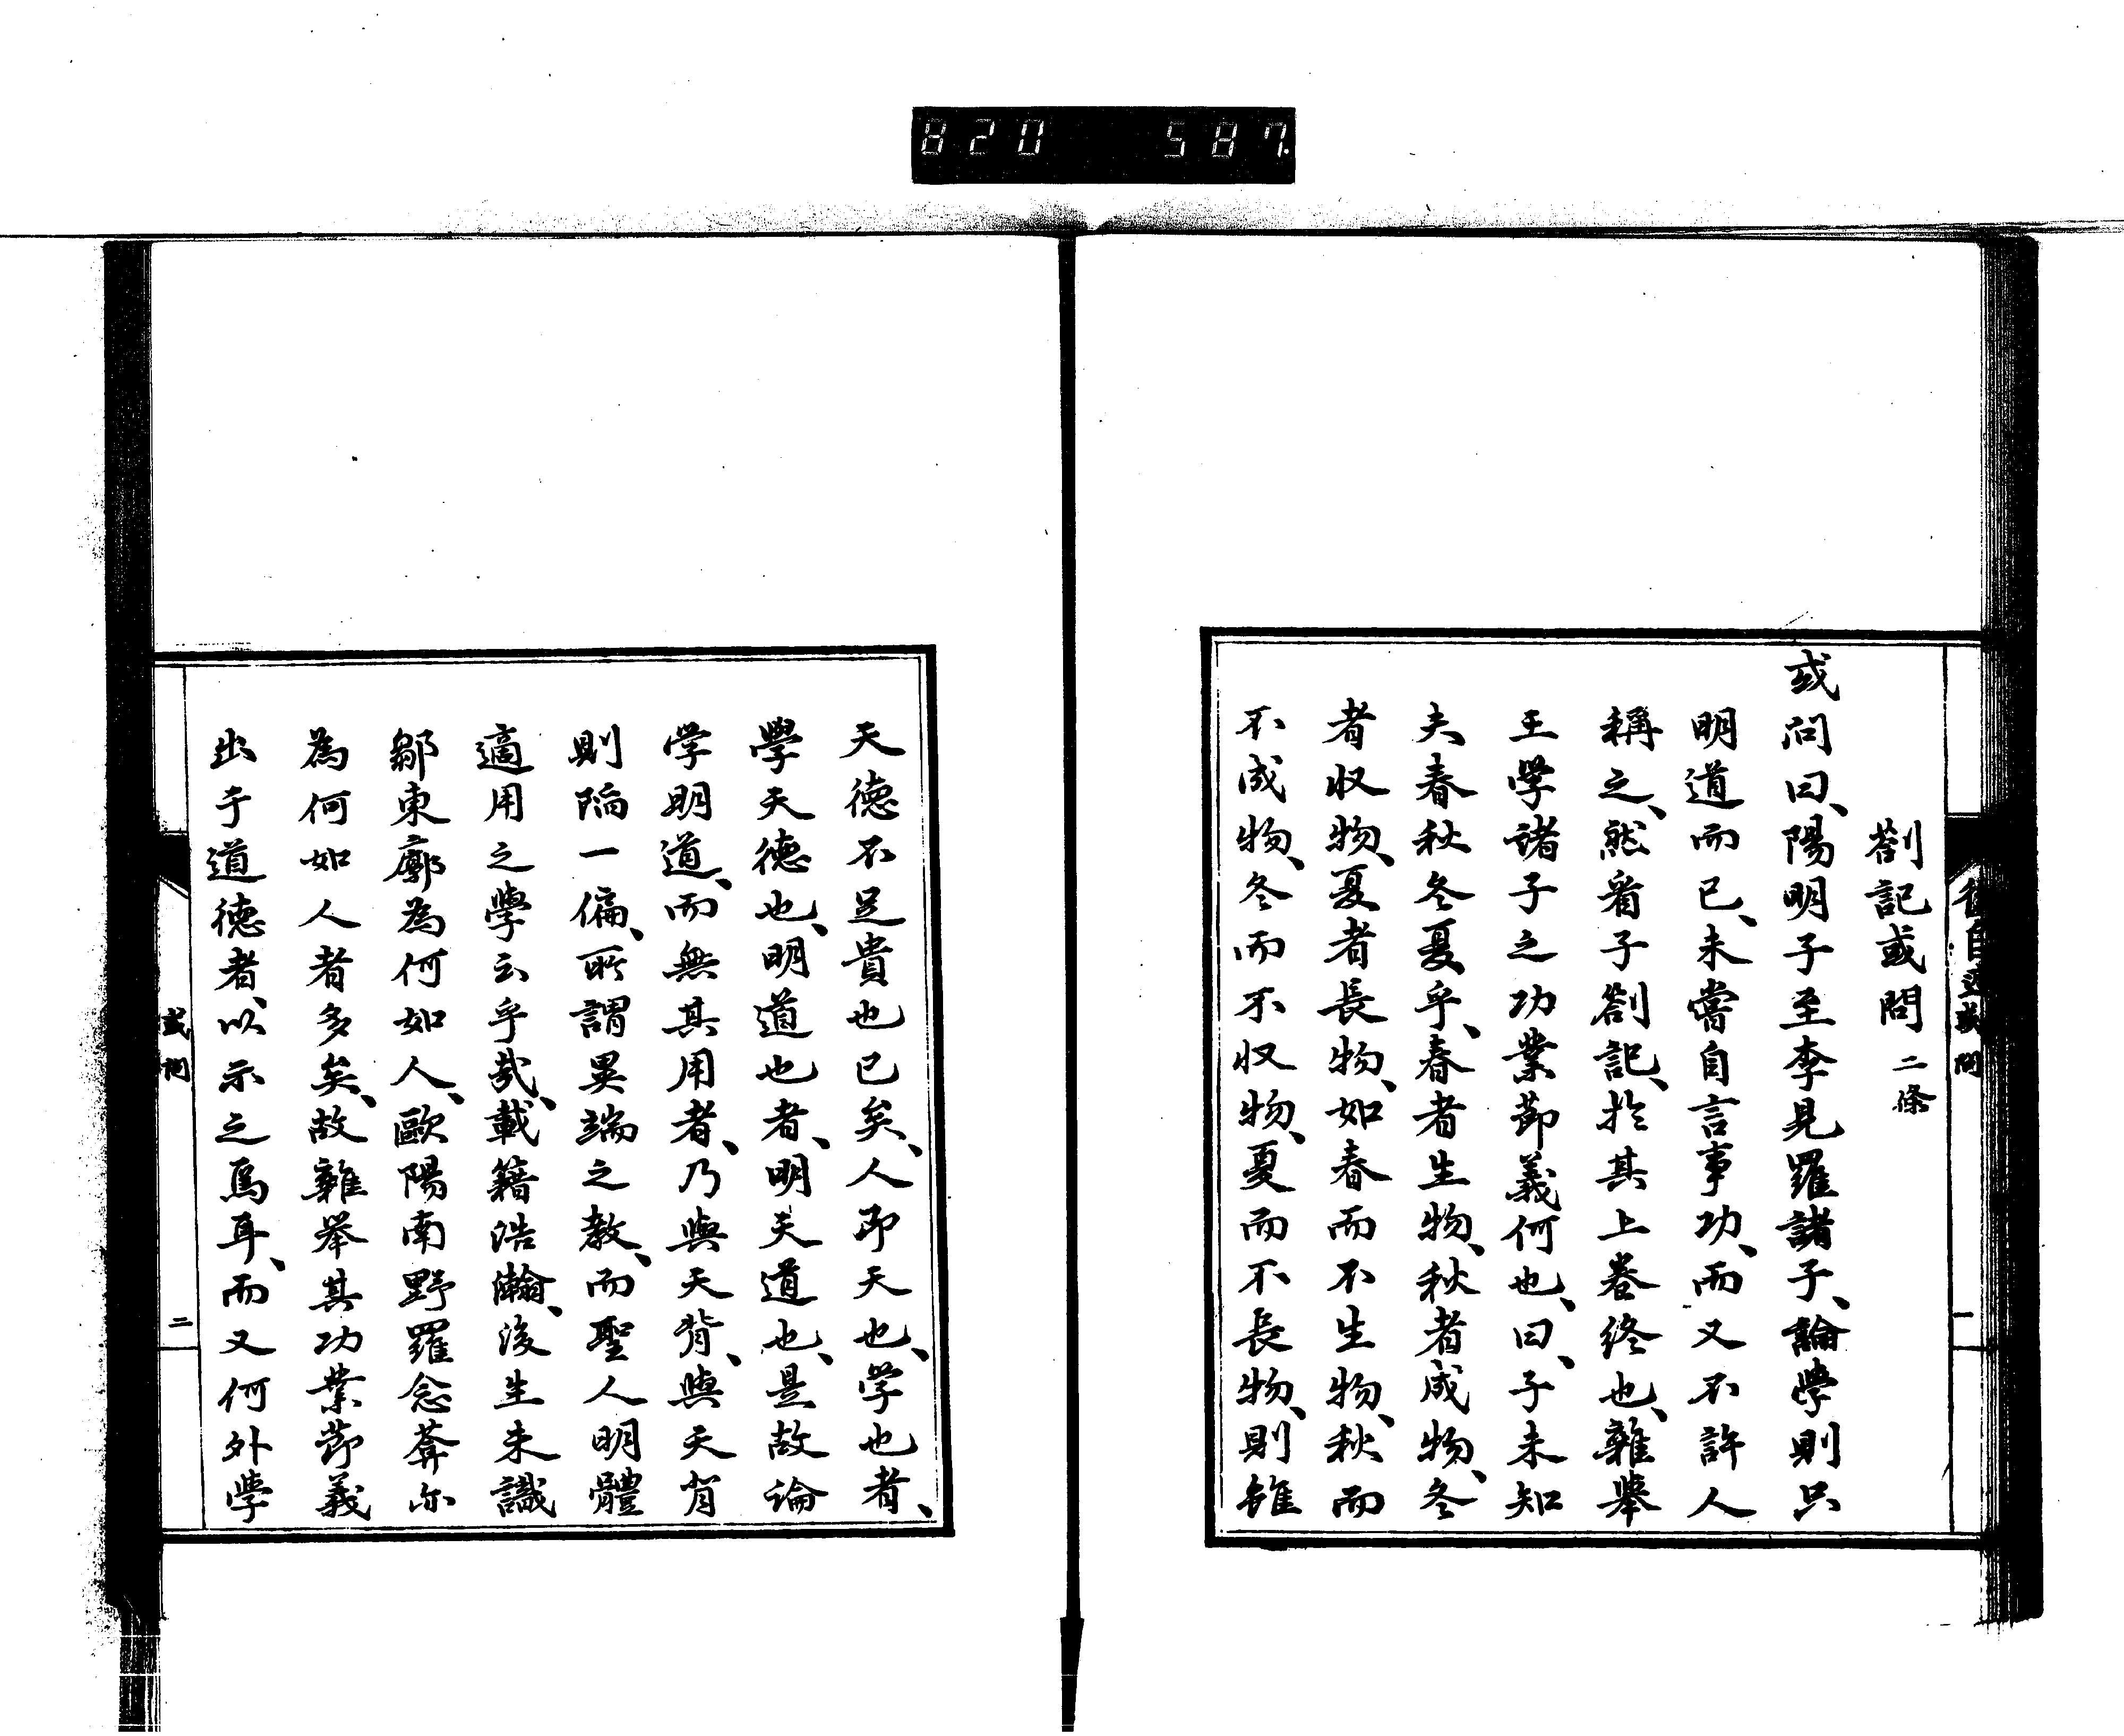 820 587.
劄記或問 二條
或問曰、陽明子至李見羅諸子、論學則只
明道而已、未嘗自言事功、而又不許人
稱之、然看子劄記、於其上卷終也、雜舉
王學諸子之功業節義何也、曰、子未知
夫春秋冬夏乎、春者生物、秋者成物、冬
者収物、夏者長物、如春而不生物、秋而
不成物、冬而不収物、夏而不長物、則雖
一
天德不足貴也已矣、人即天也、学也者、
學天德也、明道也者、明夫道也、是故論
学明道、而無其用者、乃與天背、與天背
則陷一偏、所謂異端之教、而聖人明體
適用之學云乎哉、載籍浩瀚、後生未識
鄒東廓為何如人、歐陽南野羅念菴亦
為何如人者多矣、故雜举其功業節義
出于道德者、以示之焉耳、而又何外學
或問
二